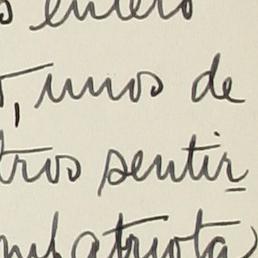 s entero
, unos de
tros sentir
mpatriota